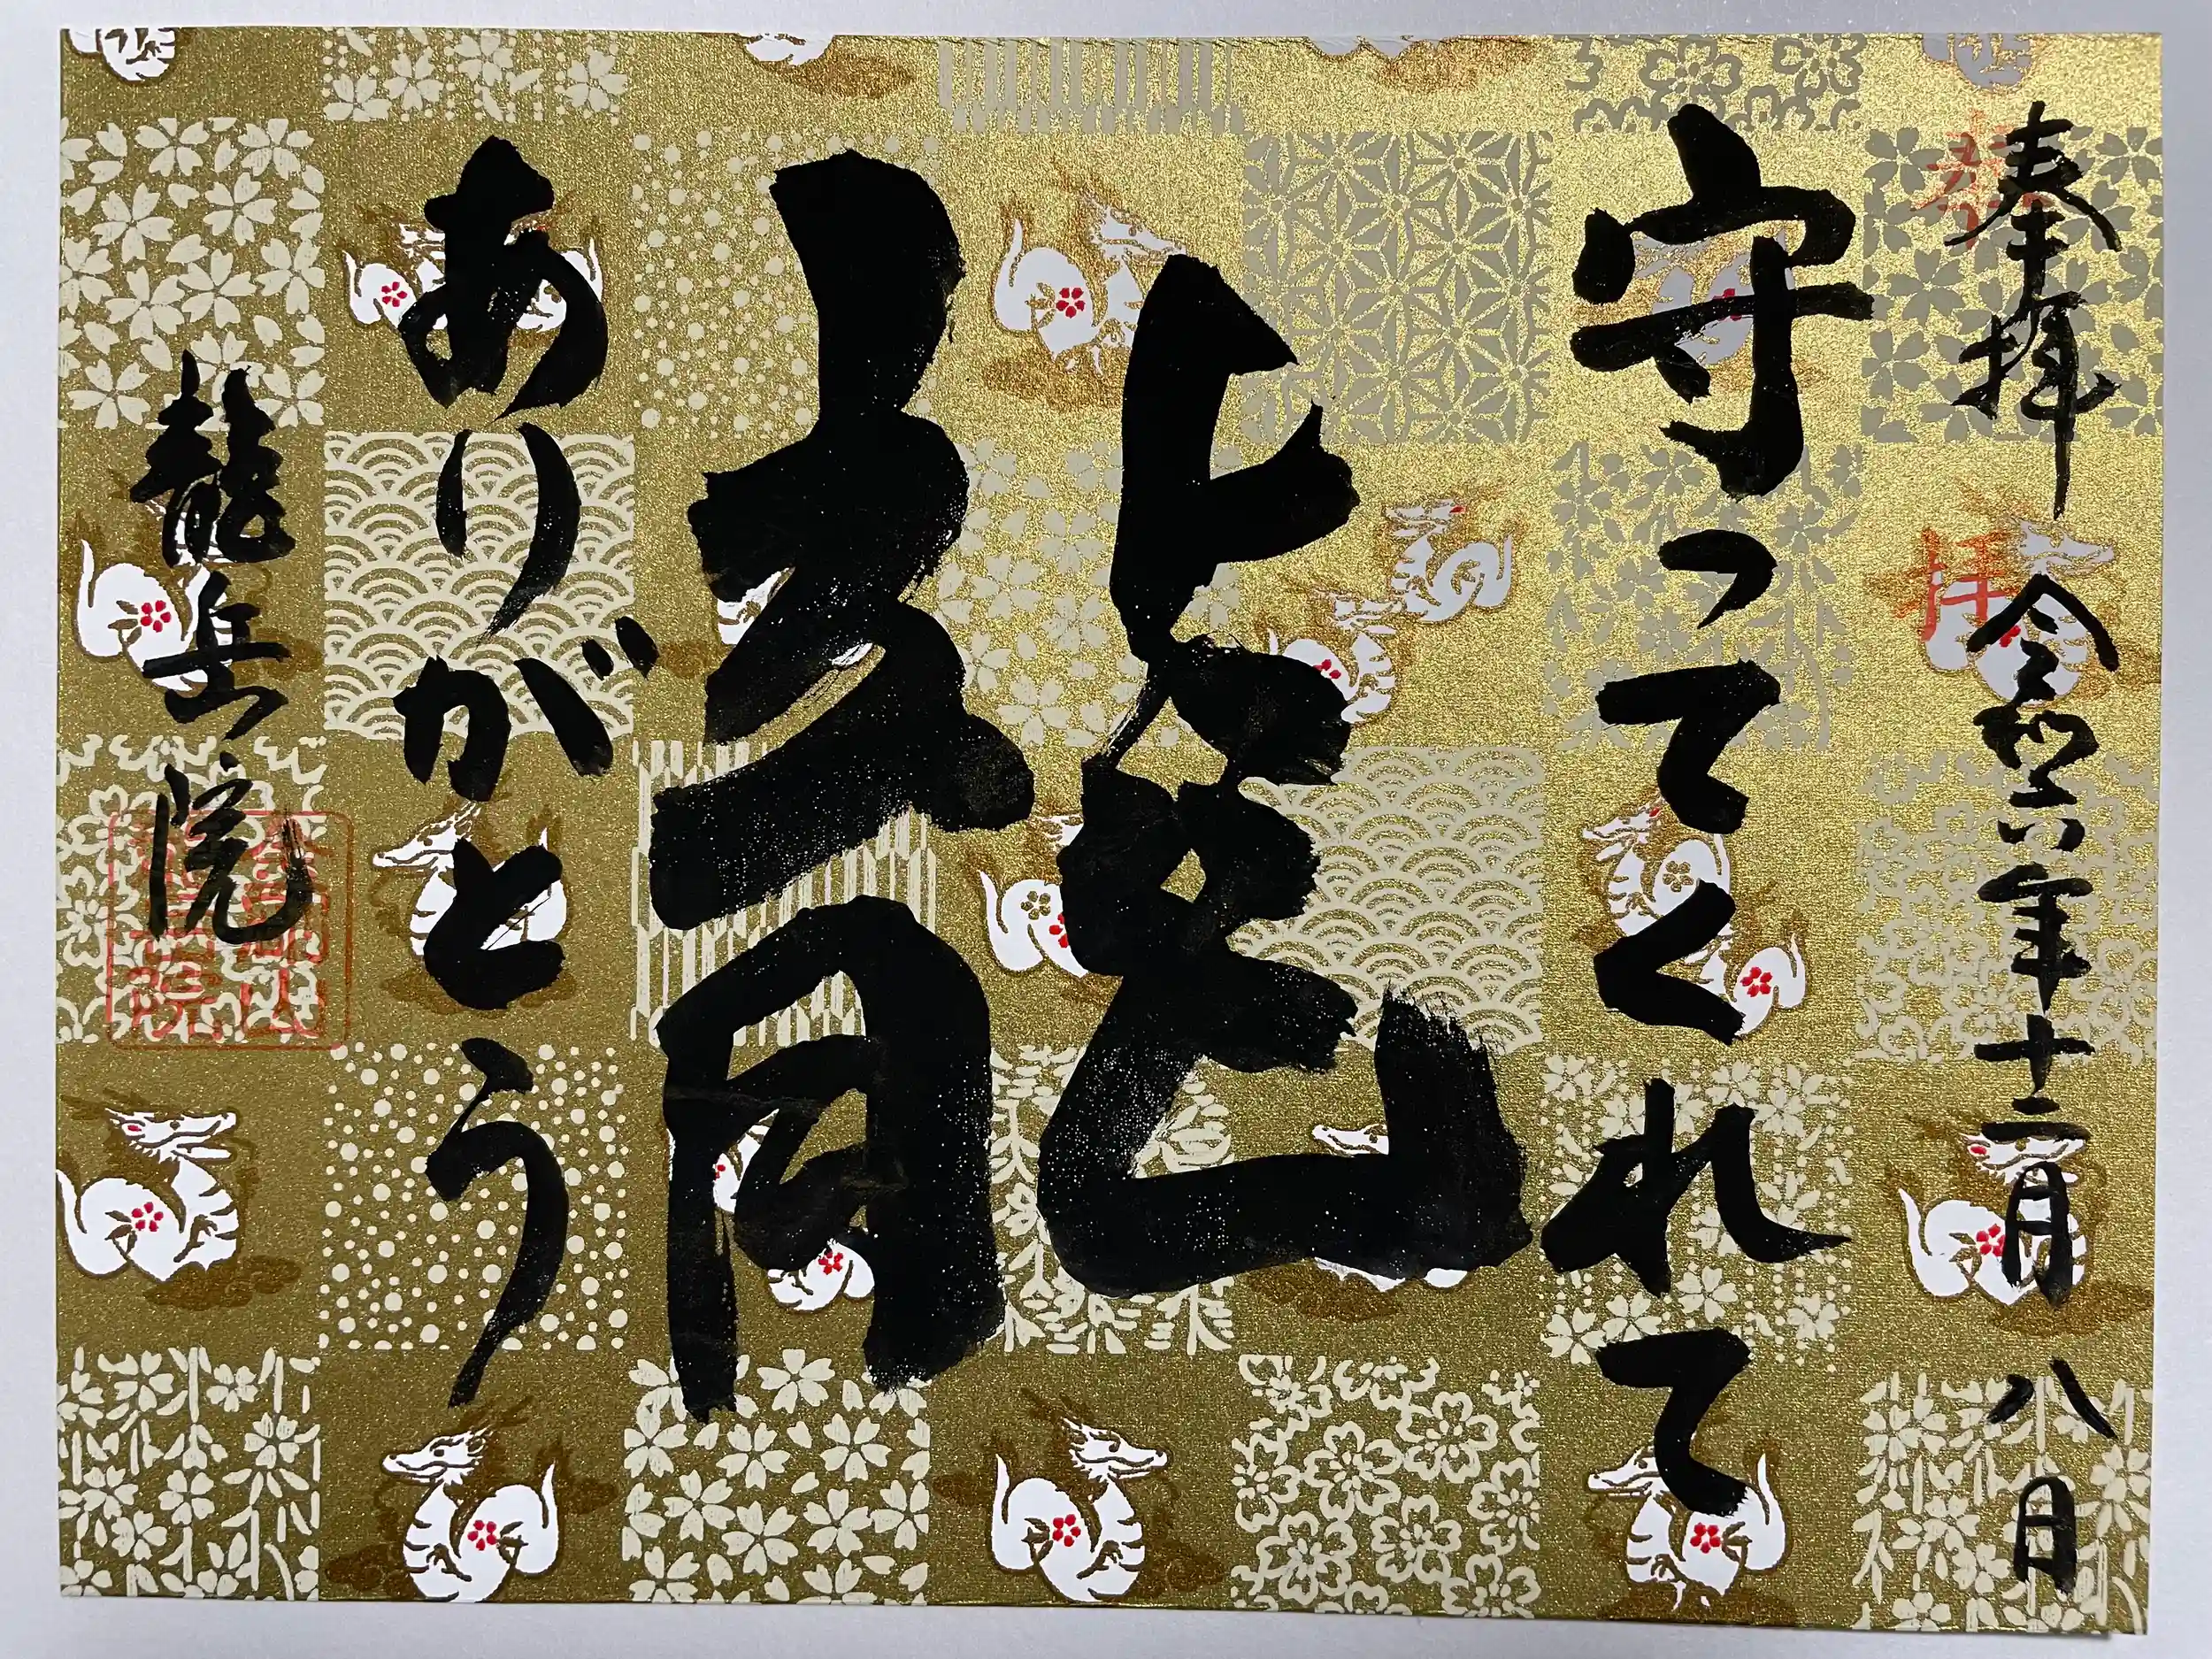 奉拝 令和六年十二月八日
守ってくれて
龍
ありがとう
龍岳院
奉拝